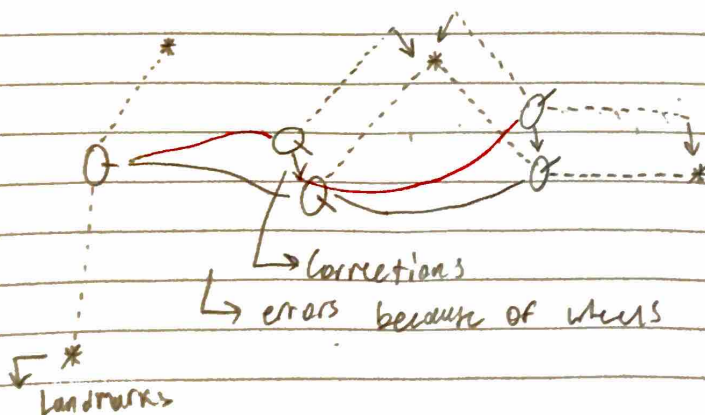 Corrections
errors because of wheels
Landmarks